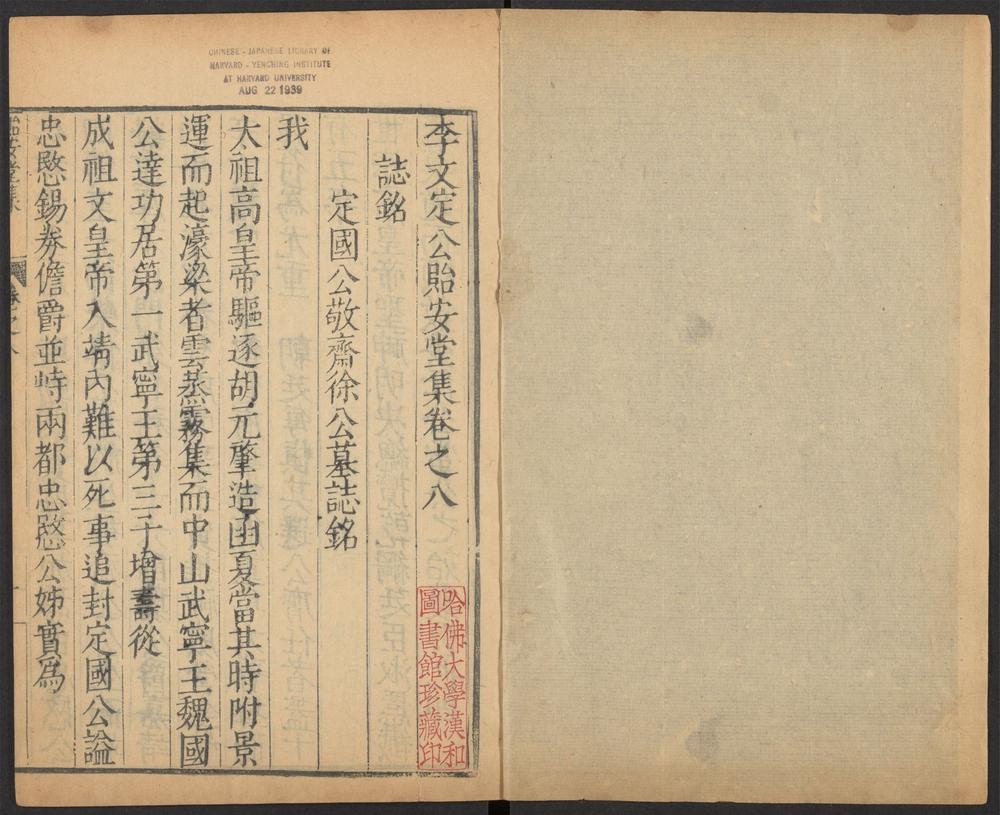 CHINESE - JAPANESE LIBRARY OF
HARVARD - YENCHING INSTITUTE
AT HARVARD UNIVERSITY
AUG 22 1939
李文定公貽安堂集卷之八
哈佛大學漢和
圖書館珍藏印
誌銘
定國公敬齋徐公墓誌銘
我
太祖高皇帝驅逐胡元肇造函夏當其時附景
運而起濠梁者雲蒸霧集而中山武寧王魏國
公達功居第一武寧王第三子增壽從
成祖文皇帝入靖內難以死事追封定國公謚
忠愍錫券儋爵並峙兩都忠愍公姊實為